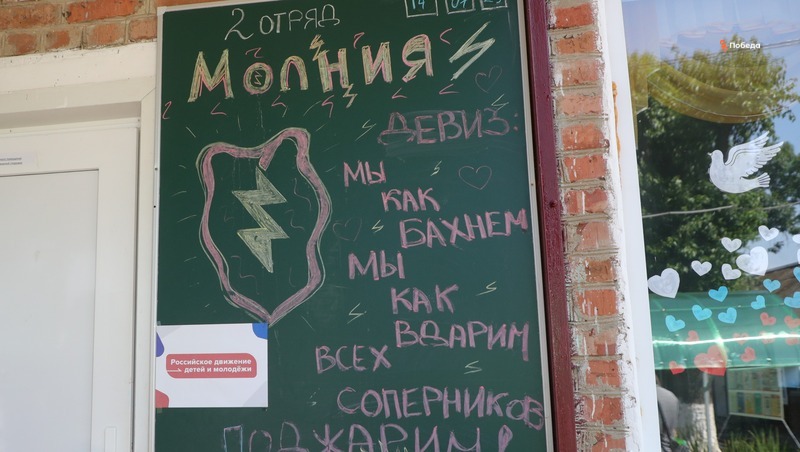 2 ОТРЯД
МОЛНИЯ
ДЕВИЗ:
МЫ
КАК
БАХНЕМ
МЫ
КАК
ВДАРИМ
ВСЕХ
СОПЕРНИКОВ
ПОДЖАРИМ!
Российское движение
детей и молодёжи
Победа